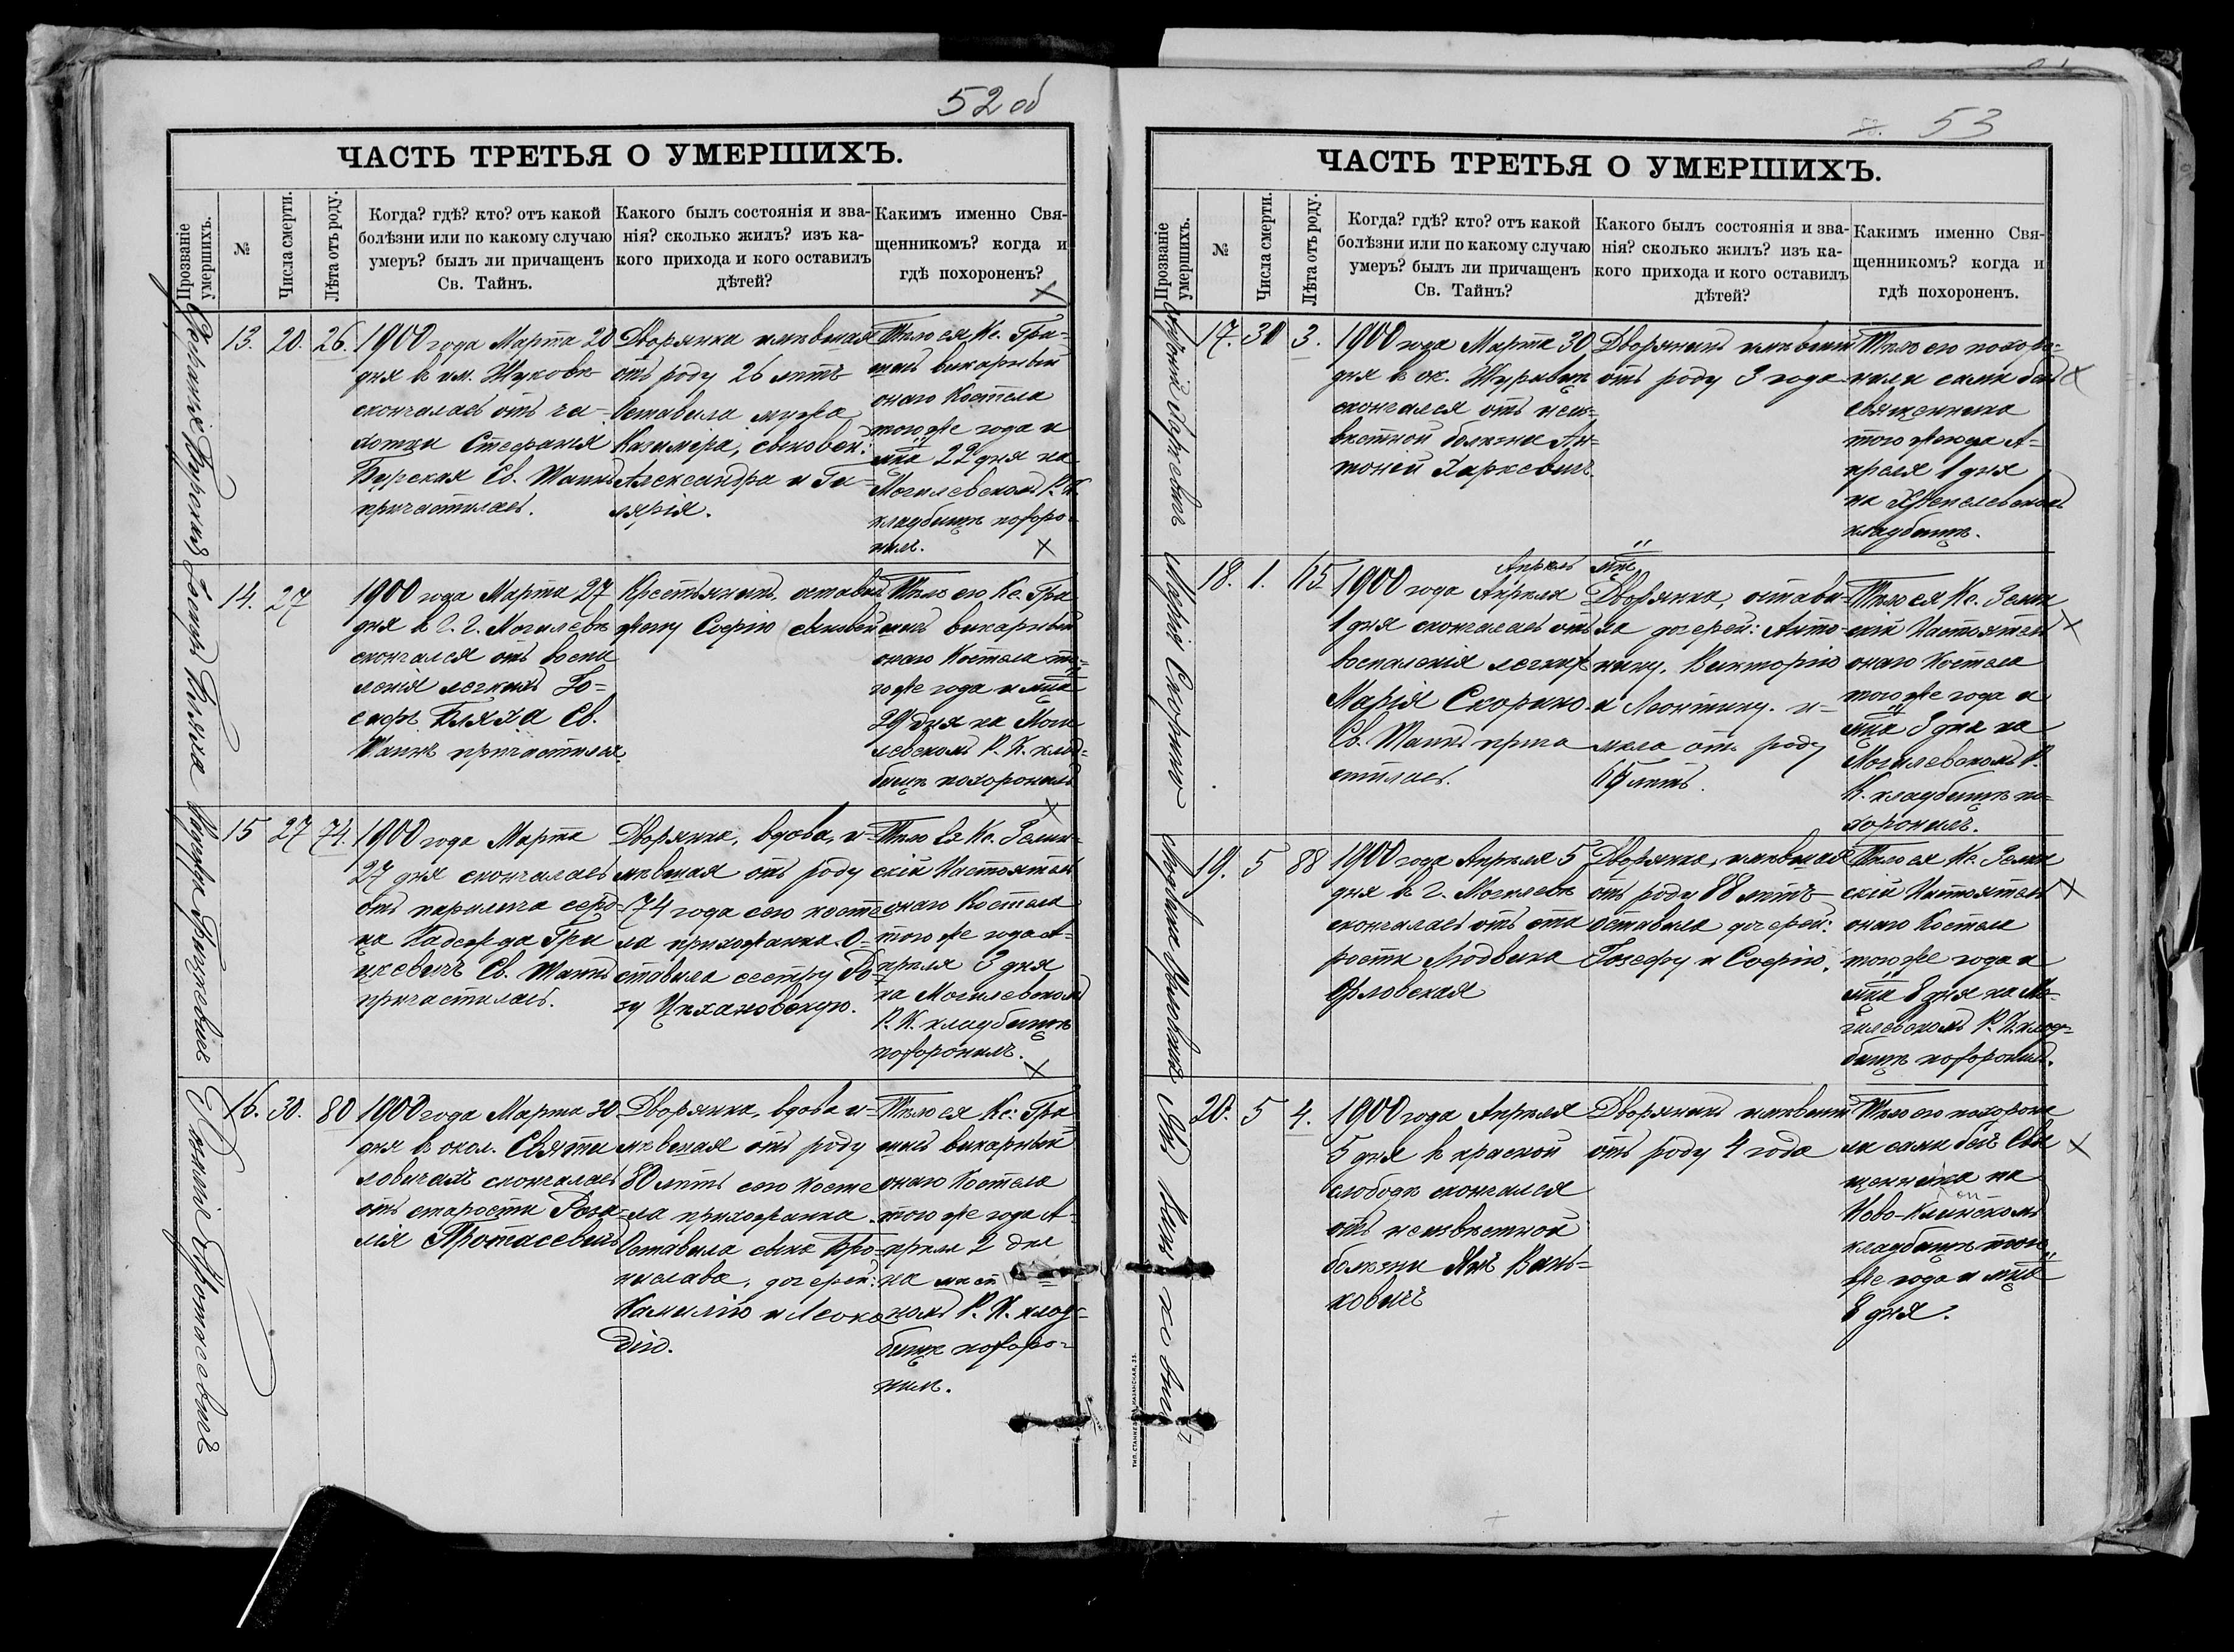 52 об
ЧАСТЬ ТРЕТЬЯ О УМЕРШИХЪ.
Прозваніе умершихъ.
№
Числа смерти.
Лѣта отъ роду.
Когда? гдѣ? кто? отъ какой
болѣзни или по какому случаю
умеръ? былъ ли причащенъ
Св. Тайнъ.
Какого былъ состоянія и зва-
нія? сколько жилъ? изъ ка-
кого прихода и кого оставилъ
дѣтей?
Какимъ именно Свя-
щенникомъ? когда и
гдѣ похороненъ?
13. 20. 26.
1900 года Марта 20
дня в им. Жуковѣ
скончалась отъ ча-
хотки Стефанія
Бурская Св. Тайнъ
причастилась.
Дворянка имѣвшая
отъ роду 26 лѣтъ
Оставила мужа
Казиміра, сыновей:
Александра и Ги-
лярія.
Тѣло ея Кс. Гри-
викарный
онаго Костела
того же года и
мца 22 дня на
Могилевскомъ Р. К.
кладбищѣ похоро-
нилъ.
Іосифъ Бляха
14. 27
1900 года Марта 27
дня в г. г. Могилевѣ
скончался отъ воспа
ленія легкихъ Іо-
сифъ Бляха Св.
Тайнъ причастился
Крестьянинъ, оставилъ
жену Софію сыновей
Тѣло его Кс. Гри
викарный
онаго Костела то-
го же года и мца
29 дня на Моги
левскомъ Р. К. клад-
бищѣ похоронилъ
Надежда Грицкевичъ
15 27 74.
1900 года Марта
27 дня скончалась
отъ паралича серд-
ца Надежда Гри
цкевичъ Св. Тайнъ
причастилась.
Дворянка, вдова, и-
мѣвшая отъ роду
74 года сего косте
ла прихожанка. О-
ставила сестру Ро-
зу Цѣхановскую.
Тѣло ея Кс. Зелин-
скій Настоятель
онаго Костела
того же года А-
прѣля 3 дня
на Могилевскомъ
Р. К. кладбищѣ
похоронилъ.
Розалія Протасевичъ
16. 30. 80
1900 года Марта 30
дня в окол. Святи
ловичахъ скончалась
отъ старости Роза-
лія Протасевичъ
Дворянка, вдова и-
мѣвшая отъ роду
80 лѣтъ сего Косте
ла прихожанка.
Оставила сына Бро-
нислава, дочерей:
Камилію и Леока
дію.
Тѣло ея Кс: Гри
викарный
онаго Костела
того же года А-
прѣля 2 дня
на мѣст
номъ Р. К. клад-
бищѣ похоро-
нилъ.
53
ЧАСТЬ ТРЕТЬЯ О УМЕРШИХЪ.
Прозваніе умершихъ.
№
Числа смерти.
Лѣта отъ роду.
Когда? гдѣ? кто? отъ какой
болѣзни или по какому случаю
умеръ? былъ ли причащенъ
Св. Тайнъ?
Какого былъ состоянія и зва-
нія? сколько жилъ? изъ ка-
кого прихода и кого оставилъ
дѣтей?
Какимъ именно Свя-
щенникомъ? когда и
гдѣ похороненъ.
17. 30 3.
1900 года Марта 30
дня в ок.
скончался отъ неиз-
вѣстной болѣзни Ан-
тоній Харкевичъ.
Дворянинъ имѣвшій
отъ роду 3 года
Тѣло его похоро-
нили сами безъ
священника
того же года А-
прѣля 1 дня
на
кладбищѣ.
Апрѣль мцъ
Марія Скорино
18. 1.
1900 года Апрѣля
1 дня скончалась отъ
воспаленія легкихъ
Марія Скорино.
Св. Тайнъ прича
стилась.
Дворянка, остави-
ла дочерей: Анто-
нину, Викторію
и Леонтину. и-
мѣла отъ роду
лѣтъ.
Тѣло ея Кс. Зелин
скій Настоятель
онаго Костела
того же года и
мца 3 дня на
Могилевскомъ Р.
К. кладбищѣ по-
хоронилъ.
Людвика Орловская
19. 5 88
1900 года Апрѣля 5
дня в г. Могилевѣ
скончалась отъ ста
рости Людвика
Орловская
Дворянка, имѣвшая
отъ роду 88 лѣтъ
оставила дочерей:
Іозефу и Софію.
Тѣло ея Кс. Зелин
скій Настоятель
онаго Костела
того же года и
мца 8 дня на Мо-
гилевскомъ Р. К. клад-
бищѣ похоронилъ.
Янъ Ваньковичъ
20. 5 4.
1900 года Апрѣля
5 дня в красной
слободѣ скончался
отъ неизвѣстной
болѣзни Янъ Вань-
ковичъ
Дворянинъ имѣвшій
отъ роду 4 года
Тѣло его похорони
ли сами безъ Свя
щенника на
Ново-
кладбищѣ того
же года и мца
8 дня.